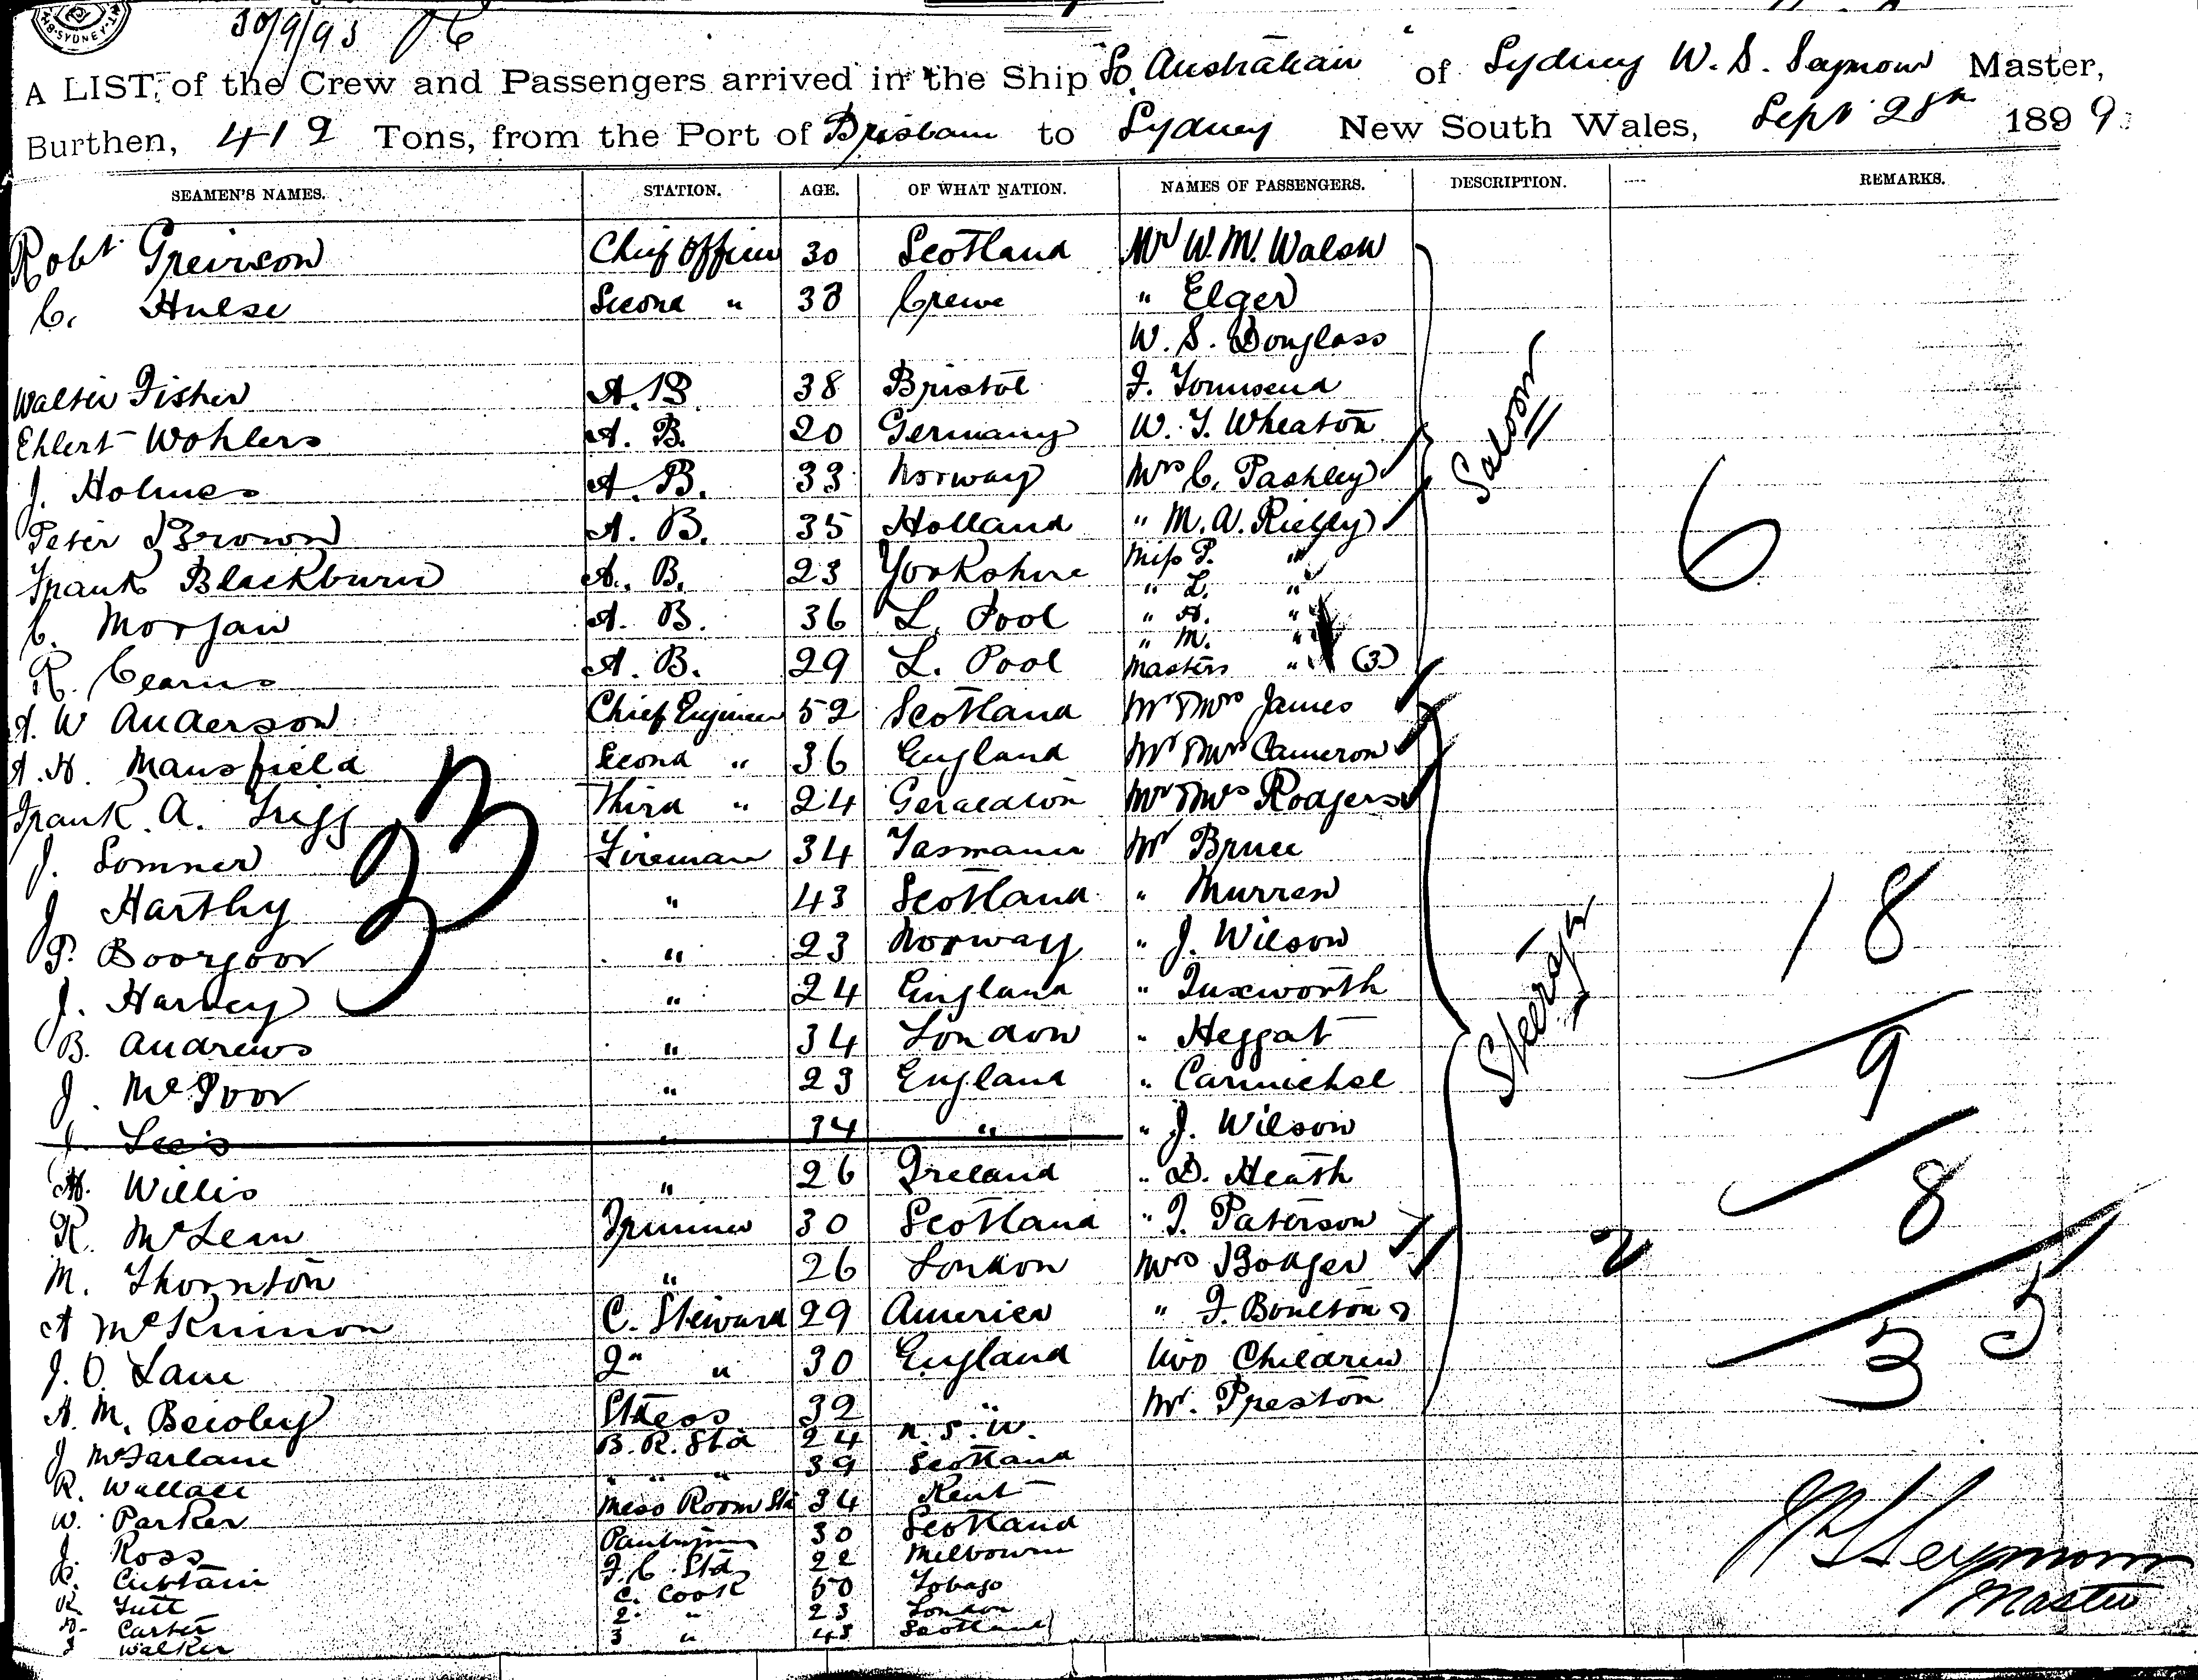 30/9/93
SYDNEY
A LIST, of the Crew and Passengers arrived in the Ship So. Australian of Sydney W. S. Seymour Master,
Burthen, 412 Tons, from the Port of Brisbane to Sydney New South Wales, Sept 28th 1899
SEAMEN'S NAMES. STATION. AGE. OF WHAT NATION. NAMES OF PASSENGERS. DESCRIPTION. REMARKS.
Robt Greirson Chief Officer 30 Scotland Mr W. M. Walsh
C. Hulse Second " 38 Crewe " Elger
W. S. Douglass
Walter Fisher A. B. 38 Bristol F. Townsend
Saloon
Ehlert Wohlers A. B. 20 Germany W. T. Wheaton
J. Holmes A. B. 33 Norway Mrs C. Pashley
Peter Brown A. B. 35 Holland " M. A. Rielly
6
Frank Blackburn A. B. 23 Yorkshire Miss P. "
" L. "
C. Morgan A. B. 36 L. Pool " A. "
" M. "
R. Cearns A. B. 29 L. Pool Masters " (3)
A. W Anderson Chief Engineer 52 Scotland Mr & Mrs James
A. H. Mansfield Second " 36 England Mr & Mrs Cameron
Frank. A. Trigg Third " 24 Geraldton Mr & Mrs Rodgers
33
J. Somner Fireman 34 Tasmania Mr Bruce
J Harthy " 43 Scotland " Murren
18
P. Boorjoor " 23 Norway " J. Wilson
J. Harvey " 24 England " Tuxworth
Steerage
B. Andrews " 34 London " Heggat
J. McIvor " 23 England " Carmichel
9
J. Lee's " 34 " " J. Wilson
H. Willis " 26 Ireland " D. Heath
R. McLean Trimmer 30 Scotland " J. Paterson
8
M. Thornton " 26 London Mrs Bodger
2
A McKinnon C. Steward 29 America " F. Boulton &
J. O. Lane 2nd " 30 England two Children
35
A. M. Beioley Stdess 32 " Mr. Preston
J McFarlane B. R. Std 24 N. S. W.
R. Wallace " " " 39 Scotland
W. Parker Mess Room Std 34 Kent
J. Ross Pantryman 30 Scotland
Curtain F. C. Std 22 Melbourne
R. Tutt C. Cook 50 Tobago
Carter 2 " 23 London
Walker 3 " 43 Scotland
W S Seymour
Master